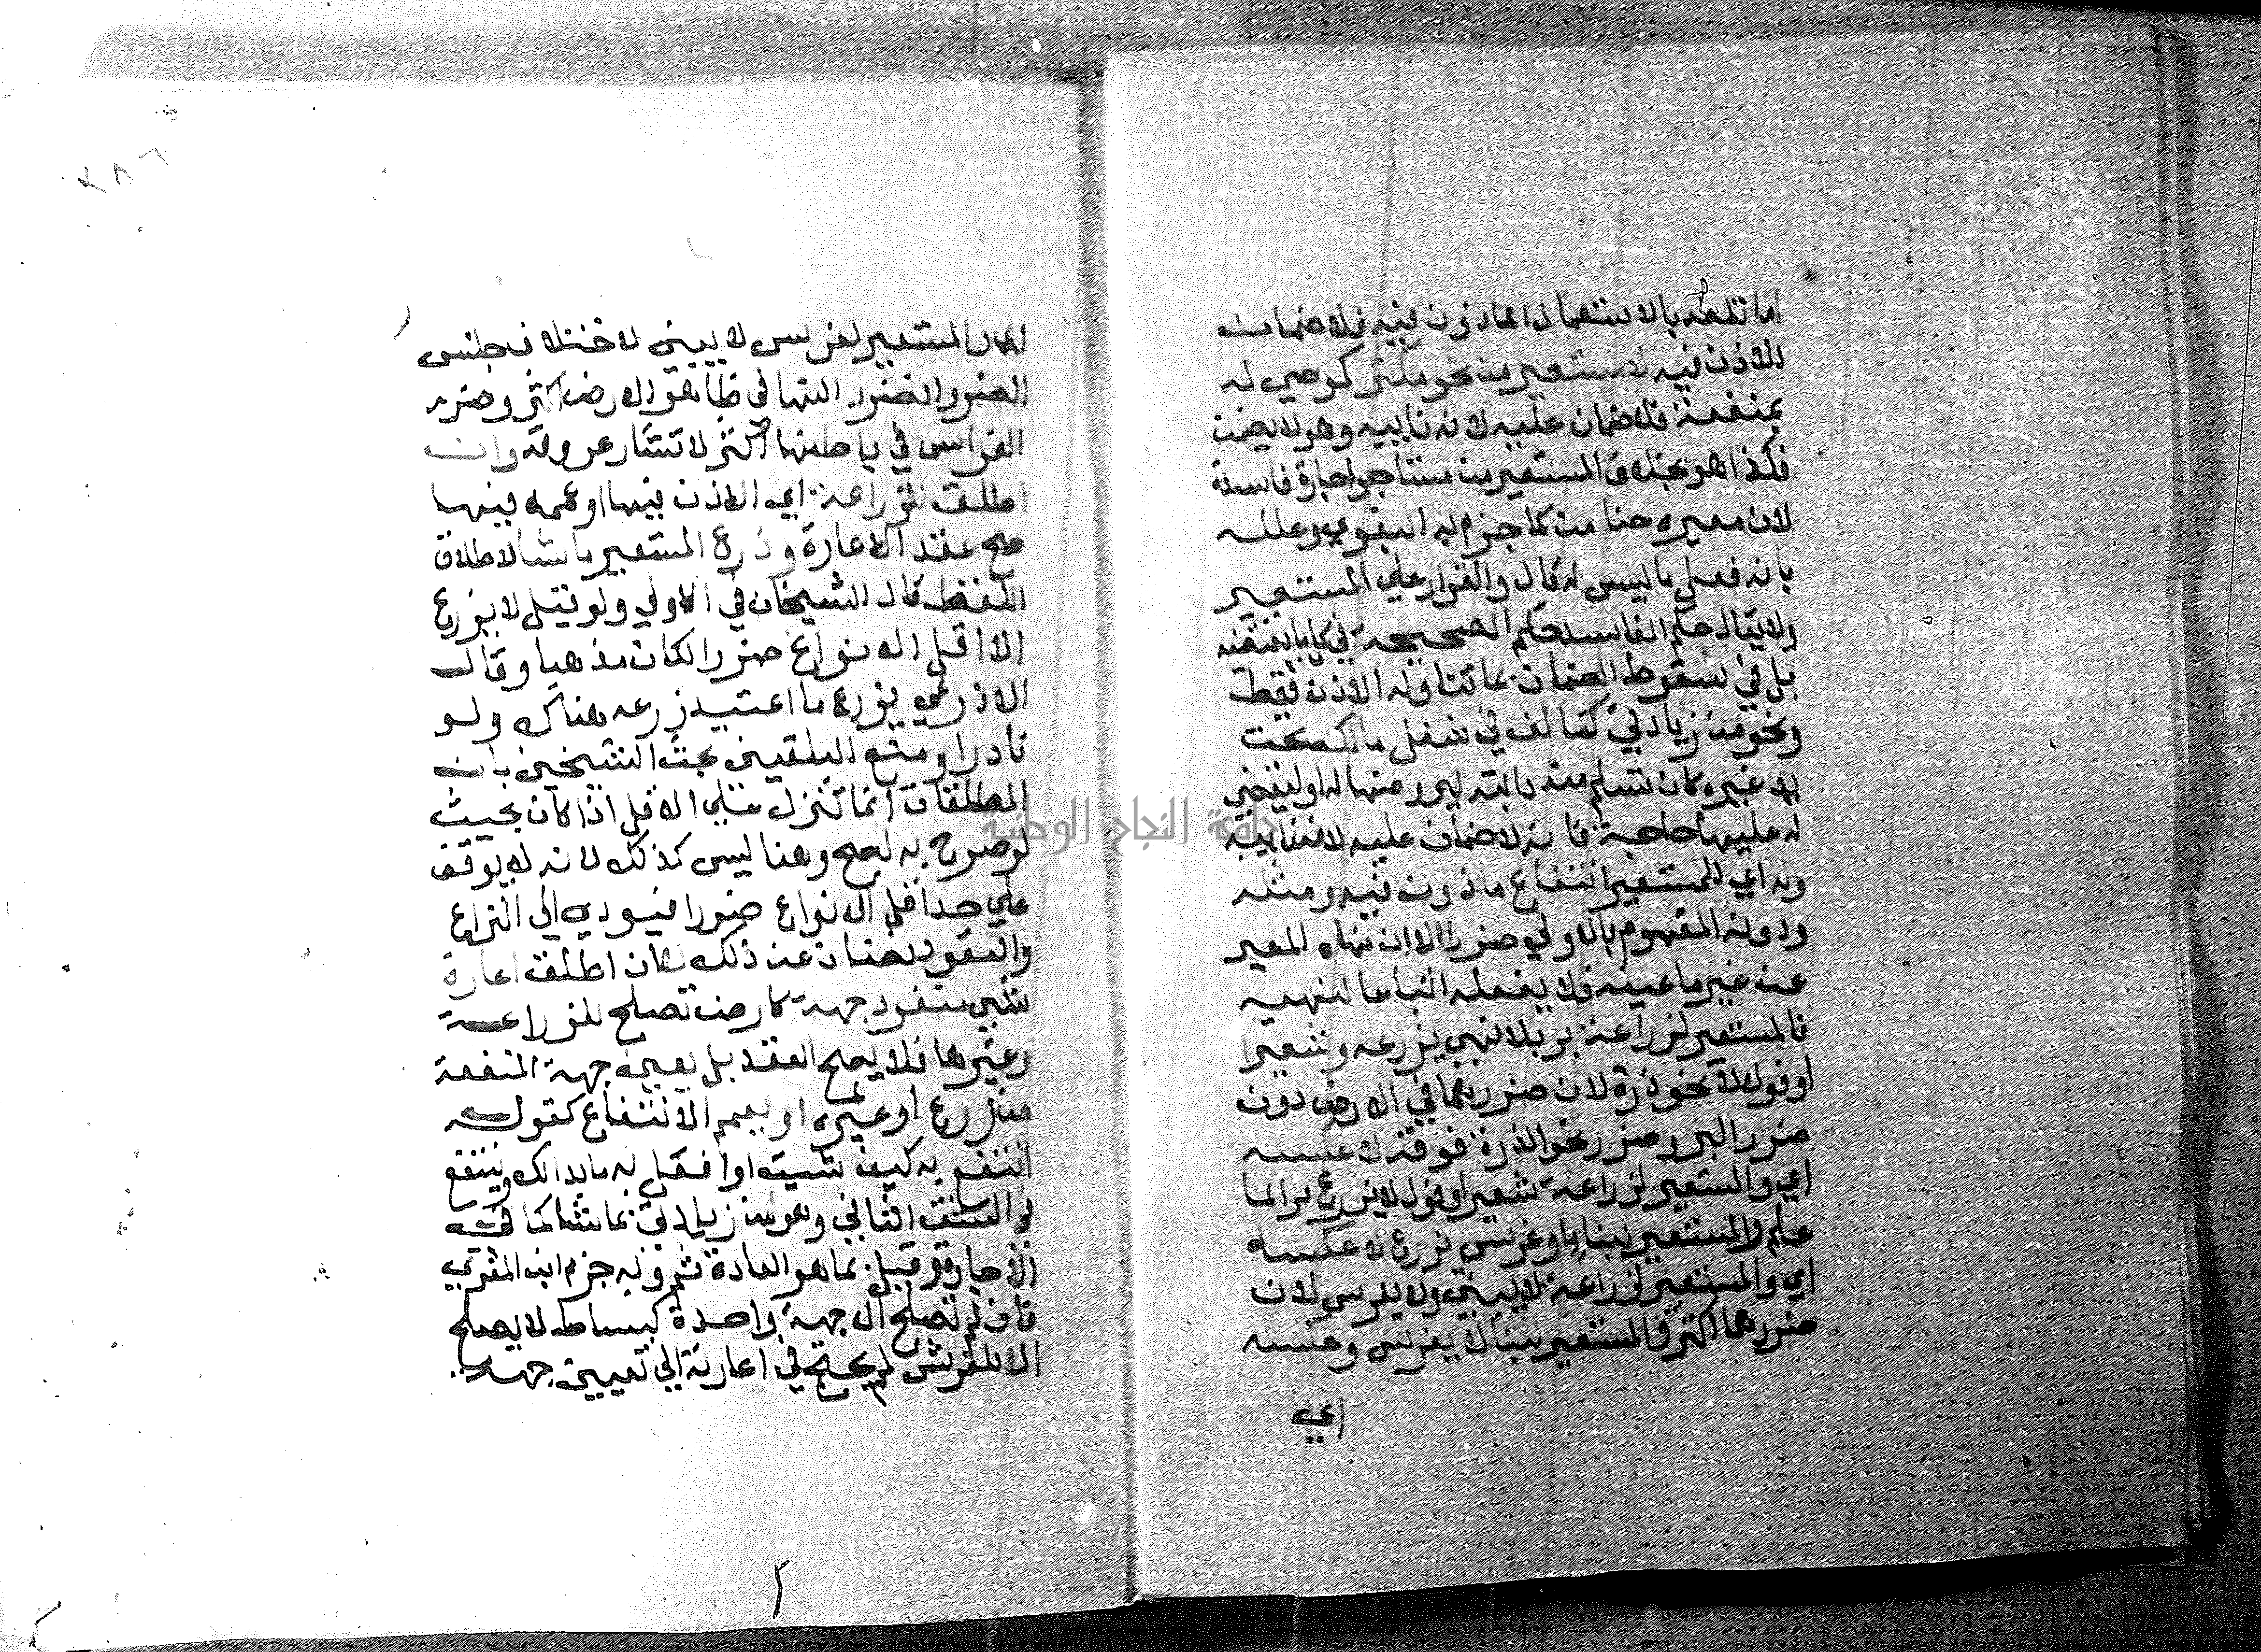 اما تلفه بالاستعمال الماذون فيه فلا ضمان
للاذن فيه لا مستعير من نحو مكتر كموصي له
بمنفعة فلا ضمان عليه لانه نايبه وهو لا يضمن
فكذا هو بخلاف المستعير من مستاجر اجارة فاسدة
لان معيره ضامن كما جزم به البغوي وعلله
بانه فعل ما ليس له قال والقرار علي المستعير
ولا يقال حكم الفاسد حكم الصحيحة في كل ما تقتضيه
بل في سقوط الضمان بما تناوله الاذن فقط
ونحو من زيادتي كتالف في شغل مالكه تحت
يد غيره كان تسلم منه دابته ليروضها له او ليقضي
له عليها حاجة فانه لا ضمان عليه لانه نايبه
وله اي للمستعير انتفاع ماذون فيه ومثله
ودونه المفهوم بالاولي ضررا الا ان نهاه المعير
عن غير ما عينه فلا يفعله اتباعا لنهيه
فالمستعير لزراعة بر بلا نهي يزرعه وشعيرا
او فولا لا نحو ذرة لان ضررهما في الارض دون
ضرر البر وضرر نحو الذرة فوقه لا عكسه
اي والمستعير لزراعة شعير او فول لا يزرع برا لما
علم والمستعير لبناء او غرس يزرع لا عكسه
اي والمستعير لزراعة لا يبني ولا يغرس لان
ضررهما اكثر والمستعير لبنا لا يغرس وعكسه
اي
اي والمستعير لغرس لا يبني لاختلاف جنس
الضرر اذ ضرر البنا في ظاهر الارض اكثر وضرر
الغراس في باطنها اكثر لانتشار عروقه وان
اطلق الزراعة اي الاذن فيها او عممه فيها
صح عقد الاعارة وزرع المستعير ما شا لاطلاق
اللفظ قال الشيخان في الاولي ولو قيل لا يزرع
الا اقل الانواع ضررا لكان مذهبا وقال
الاذرعي يزرع ما اعتيد زرعه هناك ولو
نادرا ومنع البلقيني بحث الشيخين بان
المطلقات انما تنزل علي الاقل اذا كان بحيث
لو صرح به لصح وهنا ليس كذلك لانه لا يوقف
علي حد اقل الانواع ضررا فيودي الي النزاع
والعقود تصان عن ذلك لا ان اطلق اعارة
شي متعدد جهة كارض تصلح للزراعة
وغيرها فلا يصح العقد بل يعين جهة المنفعة
من زرع او غيره او يعمم الانتفاع كقوله
انتفع به كيف شيت او افعل به ما بدا لك وينتفع
في الشق الثاني وهو من زيادتي بما شا كما في
الاجارة وقيل بما هو العادة ثم وبه جزم ابن المقري
فان لم تصلح الا لجهة واحدة كبساط لا يصلح
الا للفرش لم يحتج في اعارته الي تعيين جهة